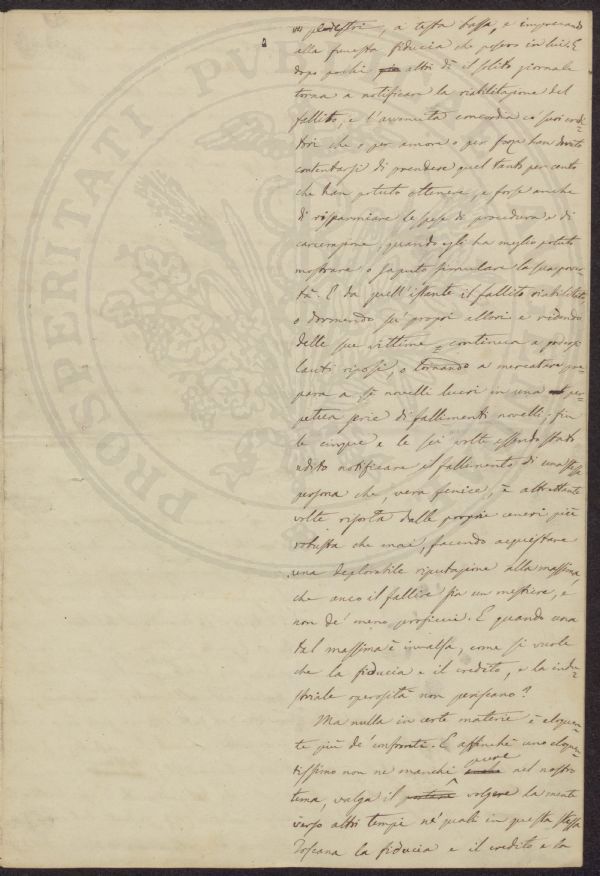 pedestri, a testa bassa, e imprecando
alla funesta fiducia che posero in lui. E
dopo pochi altri dì il solito giornale
torna a notificare la riabilitazione del
fallito, e l'avvenuta concordia co' suoi credi-
tori che o per amore o per forza han dovuto
contentarsi di prendere quel tanto per cento
che han potuto ottenere, e forse anche
di risparmiare le spese di procedura e di
carcerazione, quando egli ha meglio potuto
mostrare o saputo simulare la sua pover-
tà. E da quell'istante il fallito riabilitato,
o dormendo su' propri allori e ridendo
delle sue vittime = continua a
lauti riposi, o tornando a mercatura pre-
para a se novelli lucri in una per-
petua serie di fallimenti novelli; fin
le cinque e le sei volte essendo stato
udito notificare il fallimento di una stessa
persona che, vera fenice, è altrettante
volte risorta dalle proprie ceneri più
robusta che mai, facendo acquistare
una deplorabile riputazione alla massima,
che anco il fallire sia un mestiere, e
non de' meno proficui. E quando una
tal massima è invalsa, come si vuole
che la fiducia e il credito, e la indu-
striale operosità non periscano?
Ma nulla in certe materie è eloquen-
te più de' confronti. E affinchè uno eloquen-
tissimo non ne manchi pure nel nostro
tema, valga il volgere la mente
verso altri tempi ne' quali in questa stessa
Toscana la fiducia e il credito e la
PROSPERITATI PUBLICAE